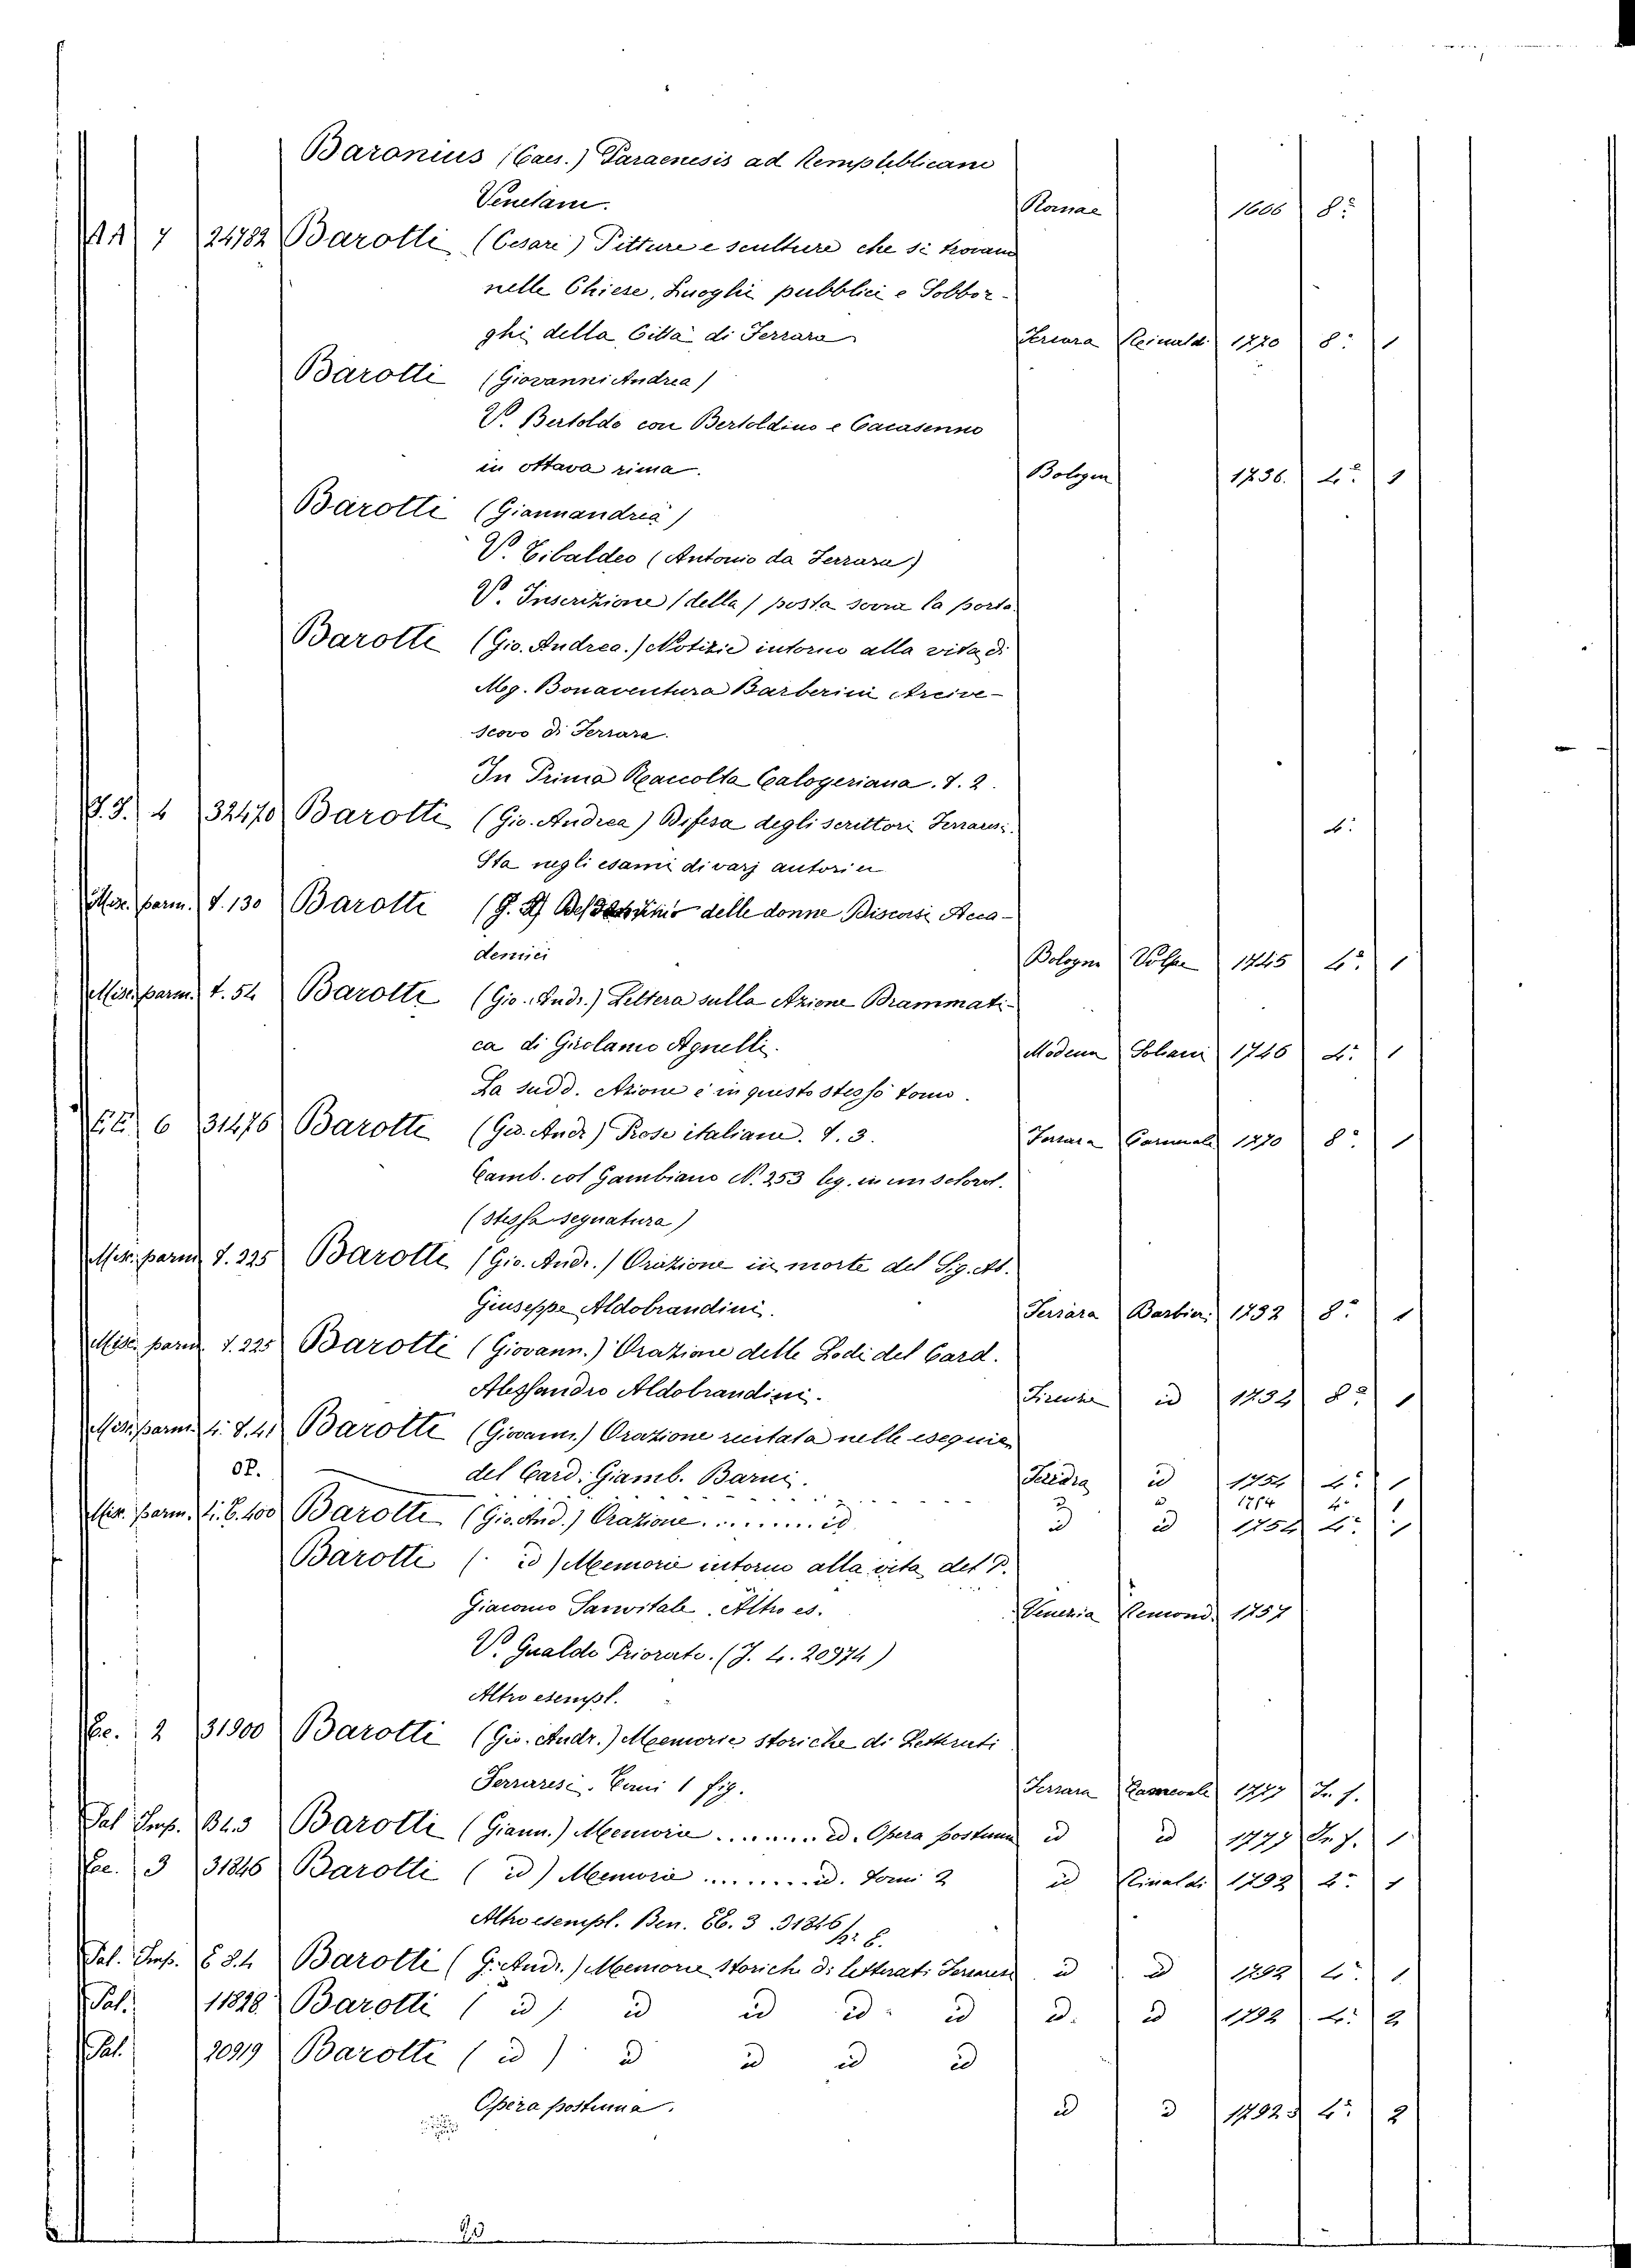 Baronius (Caes.) Paraenesis ad Rempublicam
Venetam. Romae 1606 8:
AA 7 24782 Barotti (Cesare) Pitture e sculture che si trovano
nelle Chiese, Luoghi pubblici e Sobbor-
ghi della Città di Ferrara Ferrara Rinaldi 1770 8: 1
Barotti (Giovanni Andrea)
V. Bertoldo con Bertoldino e Cacasenno
in ottava rima. Bologna 1736. 4: 1
Barotti (Giannandrea)
V. Tibaldeo (Antonio da Ferrara)
V. Inscrizione (della) posta sovra la porta
Barotti (Gio. Andrea.) Notizie intorno alla vita di
Mg. Bonaventura Barberini Arcive-
scovo di Ferrara.
In Prima Raccolta Calogeriana. T. 2.
4 32470 Barotti (Gio. Andrea) Difesa degli scrittori Ferraresi. 4:
Sta negli esami di varj autori
Misc. parm. T. 130 Barotti (G. A.) delle donne Discorsi Acca-
demici Bologna Volpe 1745 4: 1
Misc. parm. t. 54 Barotti (Gio. Andr.) Lettera sulla Azione Drammati-
ca di Girolamo Agnelli. Modena Soliani 1746 4: 1
La sudd. Azione è in questo stesso tomo.
6 31476 Barotti (Gio. Andr.) Prose italiane. T. 3. Ferrara Carneval 1770 8: 1
Camb. col Gambiano N. 253 leg. in un sol vol.
(stessa segnatura)
Misc. parm. T. 225 Barotti (Gio. Andr.) Orazione in morte del Sig. Ab.
Giuseppe Aldobrandini. Ferrara Barbieri 1732 8: 1
Misc. parm. T. 225 Barotti (Giovann.) Orazione delle Lodi del Card.
Alessandro Aldobrandini. Firenze id 1734 8: 1
Misc. parm. 4: T. 41 Barotti (Giovann.) Orazione recitata nelle esequie
del Card. Giamb. Barni. id 1754 4: 1
id id 1754 4: 1
Misc. parm. Barotti (Gio. And.) Orazione ........ id. id id 1754 4: 1
Barotti (id) Memorie intorno alla vita del P.
Giacomo Sanvitale. Altro es. Venezia Remond. 1757
V. Gualdo Priorato. (J. 4. 20974)
Altro esempl.
Cc. 2 31900 Barotti (Gio. Andr.) Memorie storiche di Letterati
Ferraresi. Tomi 1 fig. Ferrara Camerale 1777 In f.
Pal. Imp. Barotti (Giann.) Memorie ........ id. Opera postuma id id 1777 In f. 1
Cc. 3 31846 Barotti (id) Memorie ........ id. Tomi 2 id Rinaldi 1792 4: 1
Altro esempl. Ben. CC. 3 31846
Pal. Imp. Barotti (G. Andr.) Memorie storich di letterati Ferraresi id id 1792 4: 1
Pal. 11828 Barotti (id) id id id id id. id 1792 4: 2
Pal. 20919 Barotti (id) id id id id
Opera postuma. id id 1792 4: 2